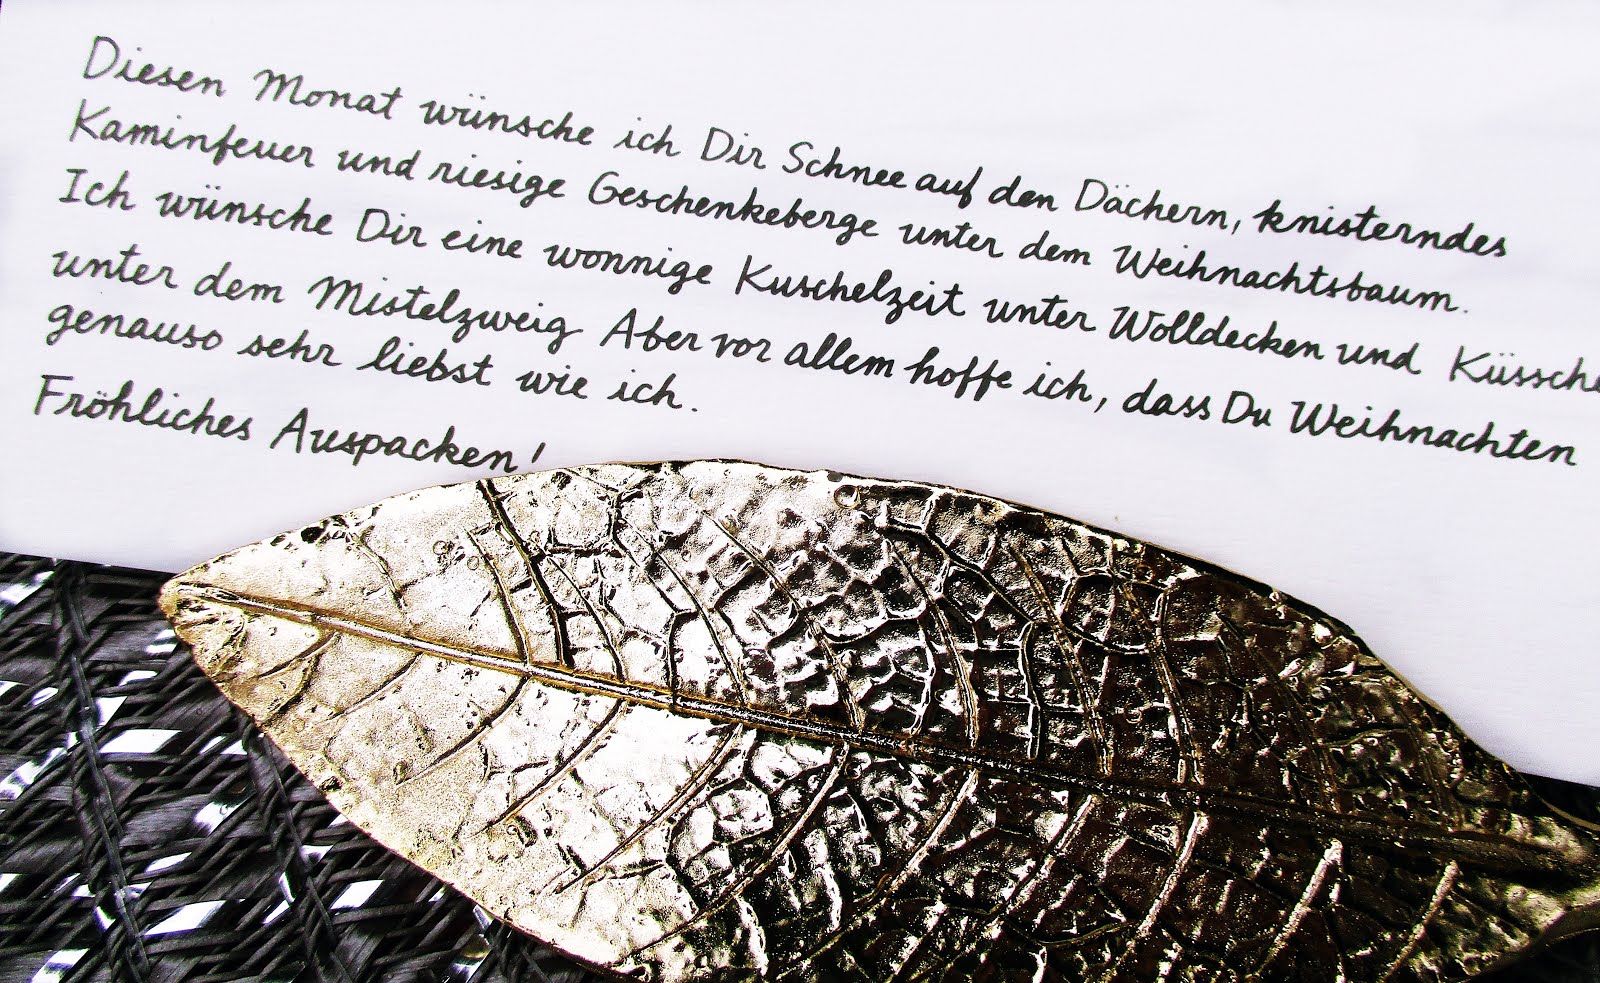 Diesen Monat wünsche ich Dir Schnee auf den Dächern, knisterndes
Kaminfeuer und riesige Geschenkeberge unter dem Weihnachtsbaum.
Ich wünsche Dir eine wonnige Kuschelzeit unter Wolldecken und Küssche
unter dem Mistelzweig Aber vor allem hoffe ich, dass Du Weihnachten
genauso sehr liebst wie ich.
Fröhliches Auspacken!